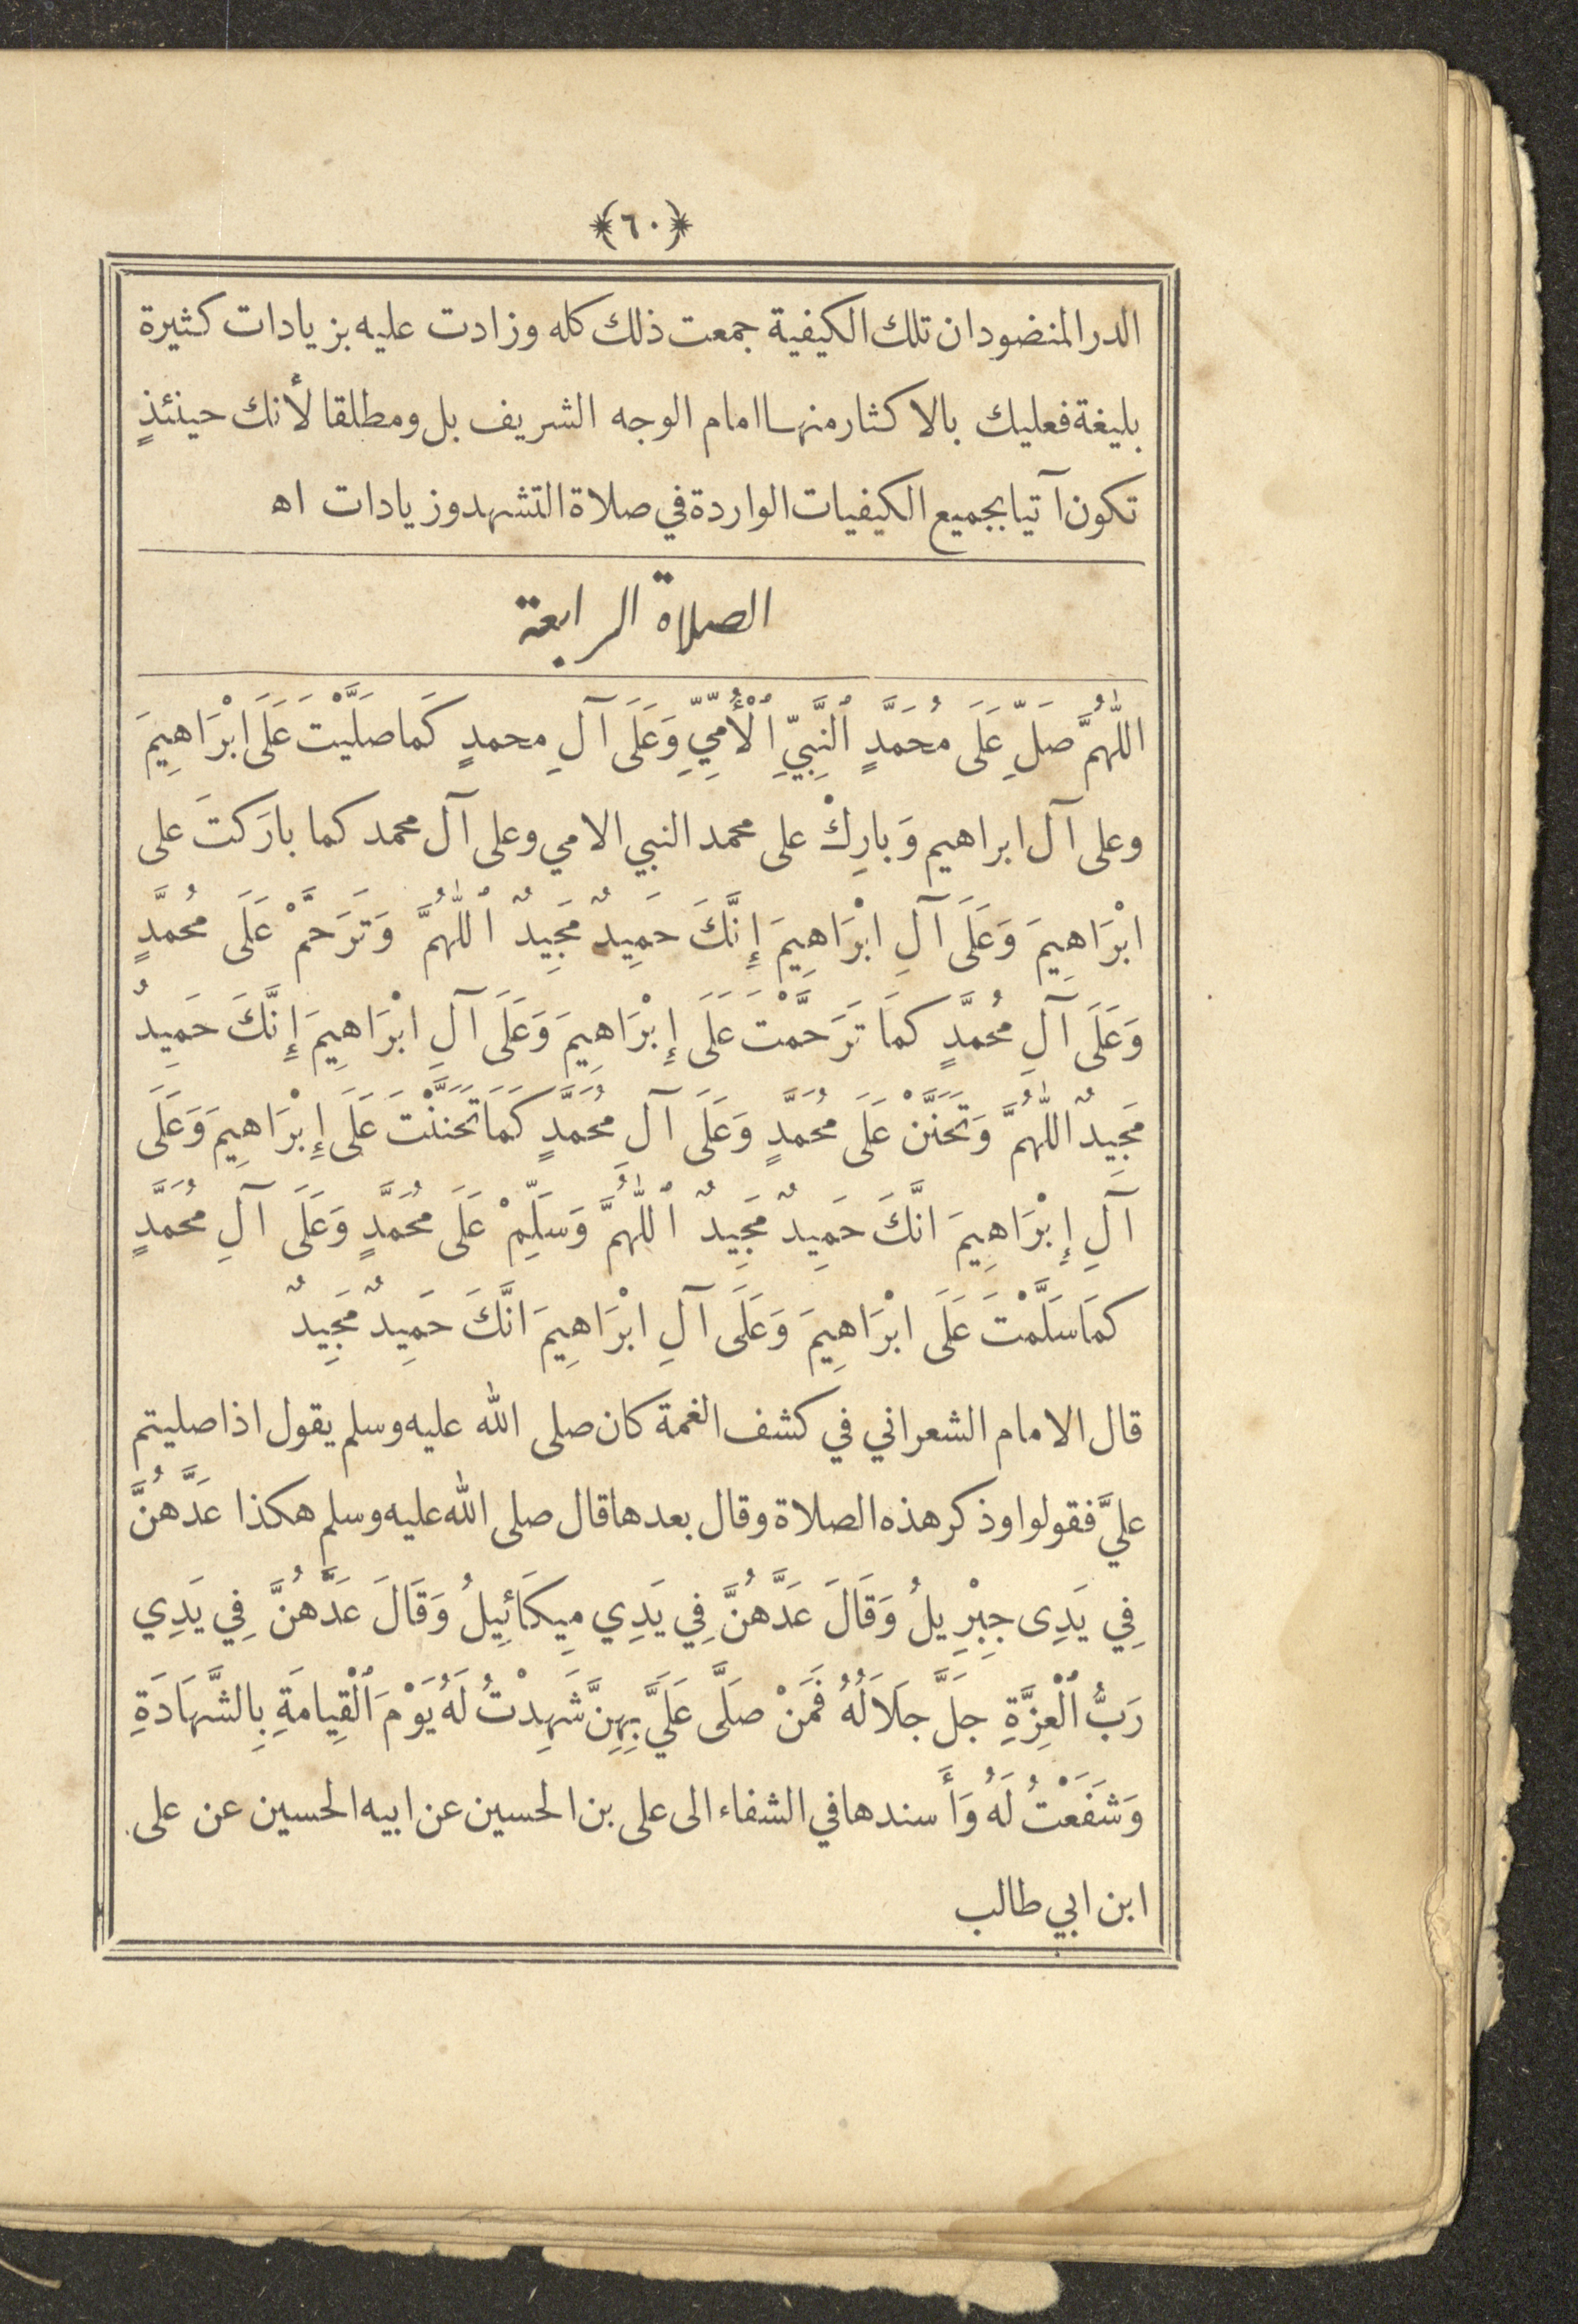 ﴿٦٠﴾
الدر المنضود ان تلك الكيفية جمعت ذلك كله وزادت عليه بزيادات كثيرة
بليغة فعليك بالاكثار منها امام الوجه الشريف بل ومطلقا لأنك حينئذٍ
تكون آتيا بجميع الكيفيات الواردة في صلاة التشهد وزيادات اه
الصلاة الرابعة
اللّٰهُمَّ صَلِّ عَلَى مُحَمَّدٍ ٱلنَّبِيِّ ٱلْأُمِّيِّ وَعَلَى آلِ محمدٍ كَما صَلَّيْتَ عَلَى ابْرَاهِيمَ
وعلى آل ابراهيم وَبارِكْ على محمد النبي الامي وعلى آل محمد كما بارَكتَ على
ابْرَاهِيمَ وَعَلَى آلِ ابْرَاهِيمَ إِنَّكَ حَمِيدٌ مَجِيدٌ ٱللّٰهُمَّ وَتَرَحَّمْ عَلَى مُحمَّدٍ
وَعَلَى آلِ مُحمَّدٍ كمَا تَرَحَّمْتَ عَلَى إِبْرَاهِيمَ وَعَلَى آلِ ابْرَاهِيمَ إِنَّكَ حَمِيدٌ
مَجِيدٌ اللّٰهُمَّ وَتَحَنَّنْ عَلَى مُحَمَّدٍ وَعَلَى آلِ مُحَمَّدٍ كَمَا تَحَنَّنْتَ عَلَى إِبْرَاهِيمَ وَعَلَى
آلِ إِبْرَاهِيمَ انَّكَ حَمِيدٌ مَجِيدٌ ٱللّٰهُمَّ وَسَلِّمْ عَلَى مُحَمَّدٍ وَعَلَى آلِ مُحَمَّدٍ
كمَا سَلَّمْتَ عَلَى ابْرَاهِيمَ وَعَلَى آلِ ابْرَاهِيمَ انَّكَ حَمِيدٌ مَجِيدٌ
قال الامام الشعراني في كشف الغمة كان صلى الله عليه وسلم يقول اذا صليتم
عليَّ فقولوا وذكر هذه الصلاة وقال بعدها قال صلى الله عليه وسلم هكذا عَدَّهُنَّ
فِي يَدِى جِبْرِيلُ وَقَالَ عَدَّهُنَّ فِي يَدِي مِيكَائِيلُ وَقَالَ عَدَّهُنَّ فِي يَدِي
رَبُّ ٱلْعِزَّةِ جَلَّ جَلَالُهُ فَمَنْ صَلَّى عَلَيَّ بِهِنَّ شَهِدْتُ لَهُ يَوْمَ ٱلْقِيامَةِ بِالشَّهَادَةِ
وَشَفَعْتُ لَهُ وَأَسندها في الشفاء الى على بن الحسين عن ابيه الحسين عن على
ابن ابي طالب